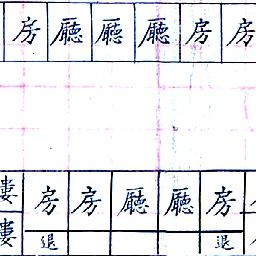 房廳廳廳房房
房房廳廳房
退 退